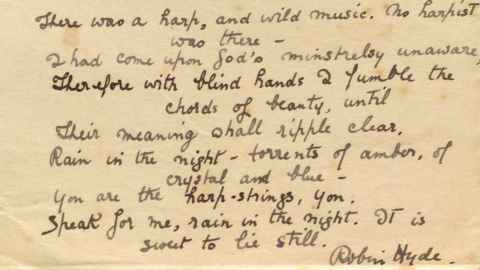 There was a harp, and wild music. No harpist
was there –
I had come upon God's minstrelsy unaware,
Therefore with blind hands I fumble the
chords of beauty, until
Their meaning shall ripple clear.
Rain in the night – torrents of amber, of
crystal and blue –
You are the harp-strings, you.
Speak for me, rain in the night. It is
sweet to lie still.
Robin Hyde.